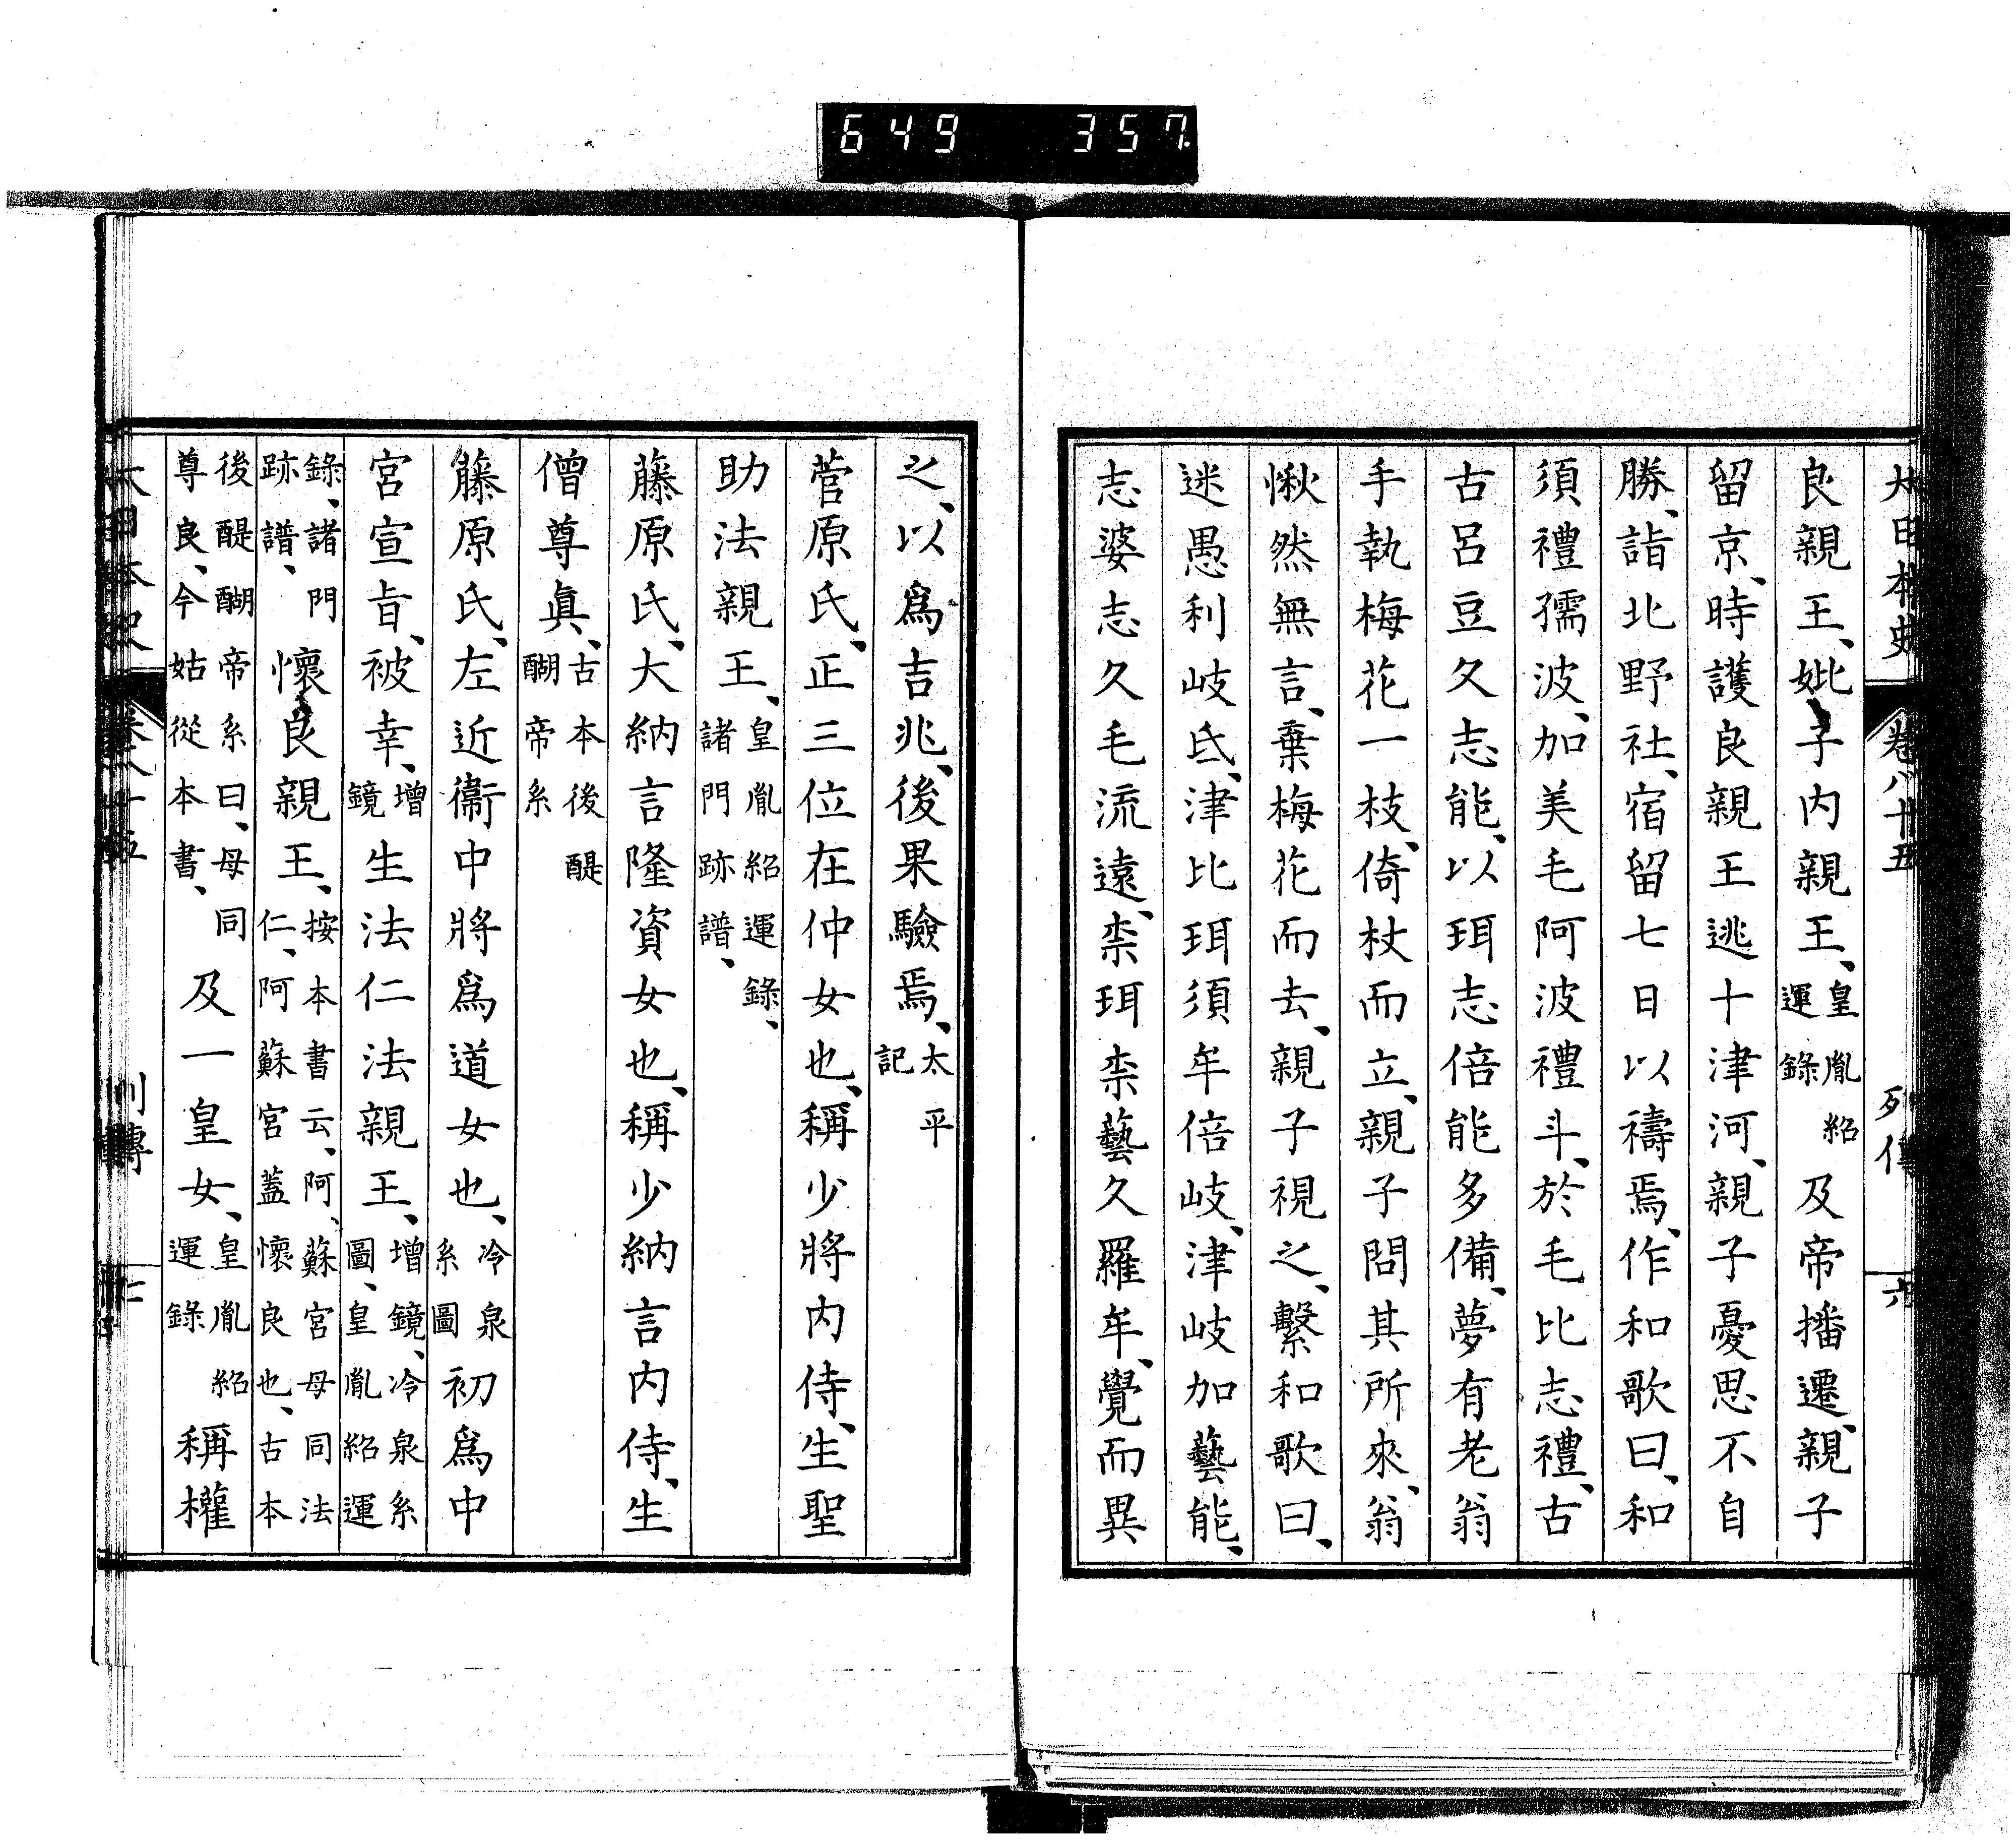 649 357.
大日本史 卷八十五 列傳 六
良親王、妣子内親王、皇胤紹運錄 及帝播遷、親子
留京、時護良親王逃十津河、親子憂思不自
勝、詣北野社、宿留七日以禱焉、作和歌曰、和
須禮孺波、加美毛阿波禮斗、於毛比志禮、古
古呂豆久志能、以珥志倍能多備、夢有老翁
手執梅花一枝、倚杖而立、親子問其所來、翁
愀然無言、棄梅花而去、親子視之、繫和歌曰、
迷愚利岐氐、津比珥須牟倍岐、津岐加藝能、
志婆志久毛流遠、柰珥柰藝久羅牟、覺而異
之、以爲吉兆、後果驗焉、太平記
菅原氏、正三位在仲女也、稱少將内侍、生聖
助法親王、皇胤紹運錄、諸門跡譜、
藤原氏、大納言隆資女也、稱少納言内侍、生
僧尊眞、古本後醍醐帝系
藤原氏、左近衞中將爲道女也、冷泉系圖 初爲中
宮宣旨、被幸、增鏡 生法仁法親王、增鏡、冷泉系圖、皇胤紹運
錄、諸門跡譜、 懷良親王、按本書云、阿蘇宮母同法仁、阿蘇宮蓋懷良也、古本
後醍醐帝系曰、母同尊良、今姑從本書、 及一皇女、皇胤紹運錄 稱權
大日本史 卷八十五 列傳 七